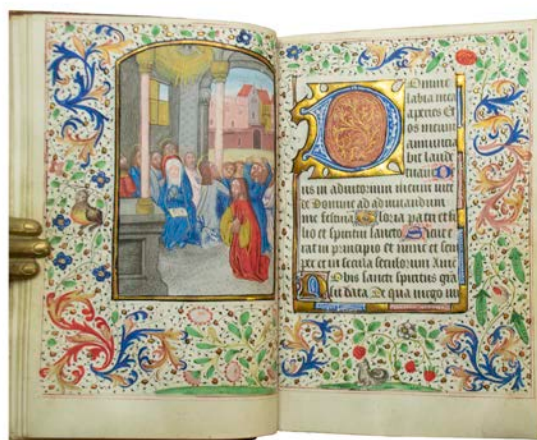 DOmine
labia mea
aperies Et
os meum
annuncia
bit laude
tuam D
eus in adiutorium meum inte
de Domine ad adiuuandum
me festina Gloria patri et fi
lio et spiritui sancto Sicut e
rat in principio et nunc et sem
per et in secula seculorum Ame
Nobis sancti spiritus gra
sit data De qua uirgo